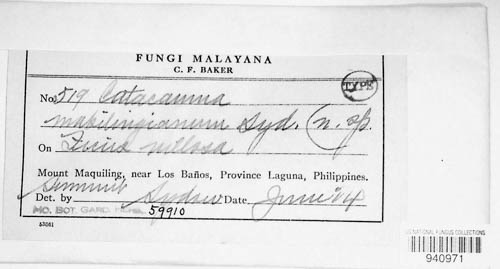 FUNGI MALAYANA
C. F. BAKER
TYPE
No. 519 Catacauma
makilingianum Syd. (n. sp.
On Ficus villosa
Mount Maquiling, near Los Baños, Province Laguna, Philippines.
Summit
Det. by Sydow Date, June '14
MO. BOT. GARD. HERB. 59910
53081
US NATIONAL FUNGUS COLLECTIONS
940971